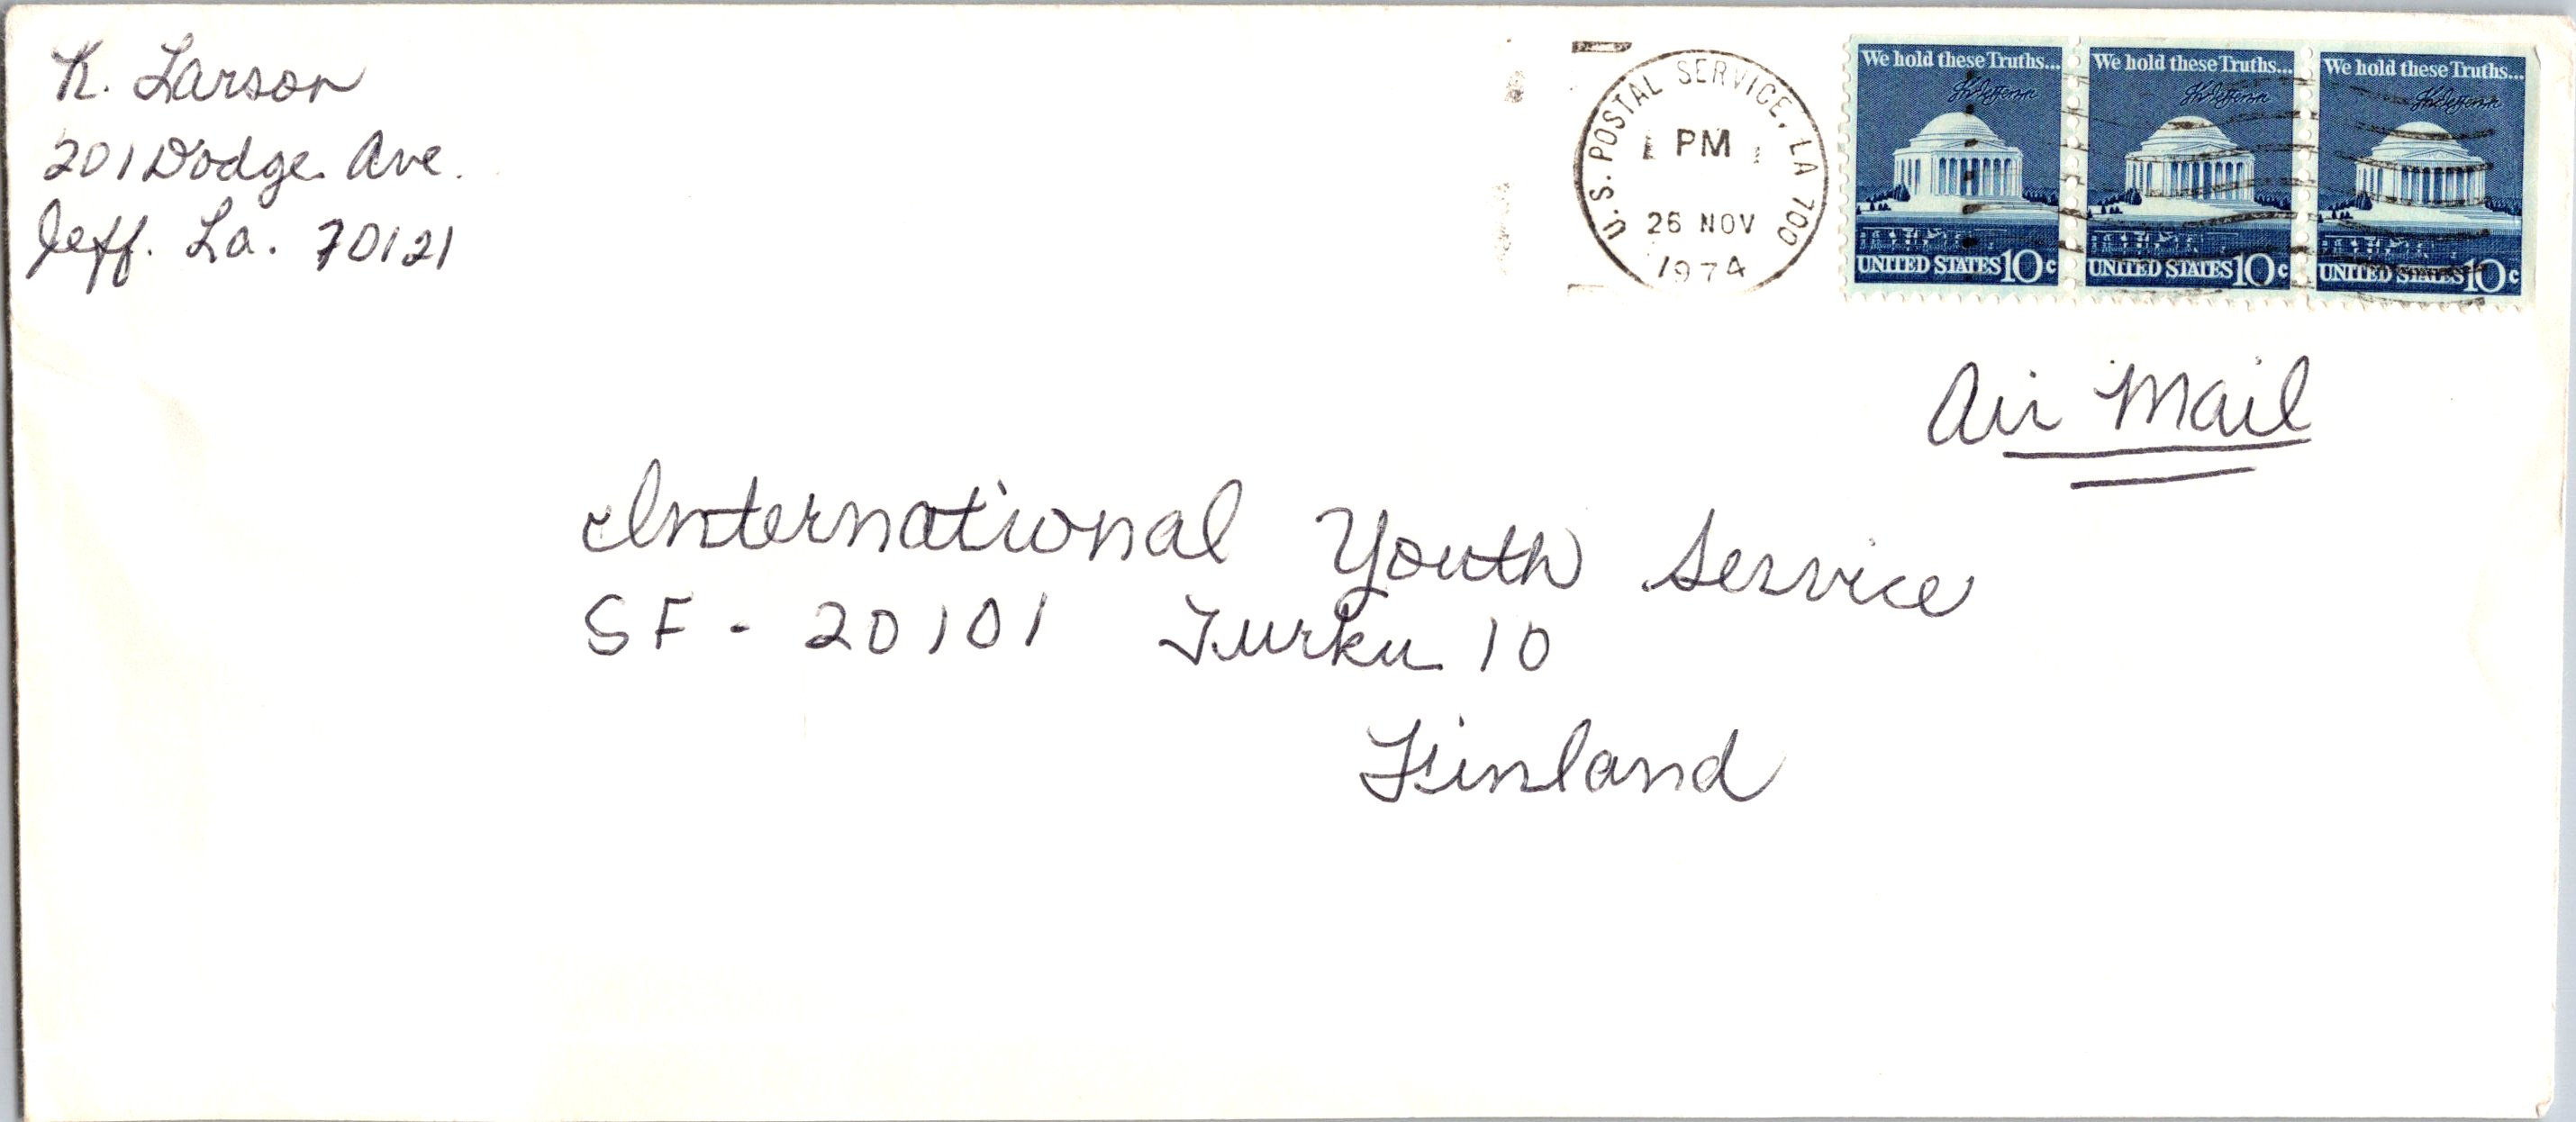 K. Larson
201 Dodge Ave.
Jeff. La. 70121
U.S. POSTAL SERVICE, LA 700
PM
26 NOV
1974
We hold these Truths...
Th Jefferson
UNITED STATES 10c
We hold these Truths...
Th Jefferson
UNITED STATES 10c
We hold these Truths...
Th Jefferson
UNITED STATES 10c
Air Mail
International Youth Service
SF - 20101 Turku 10
Finland